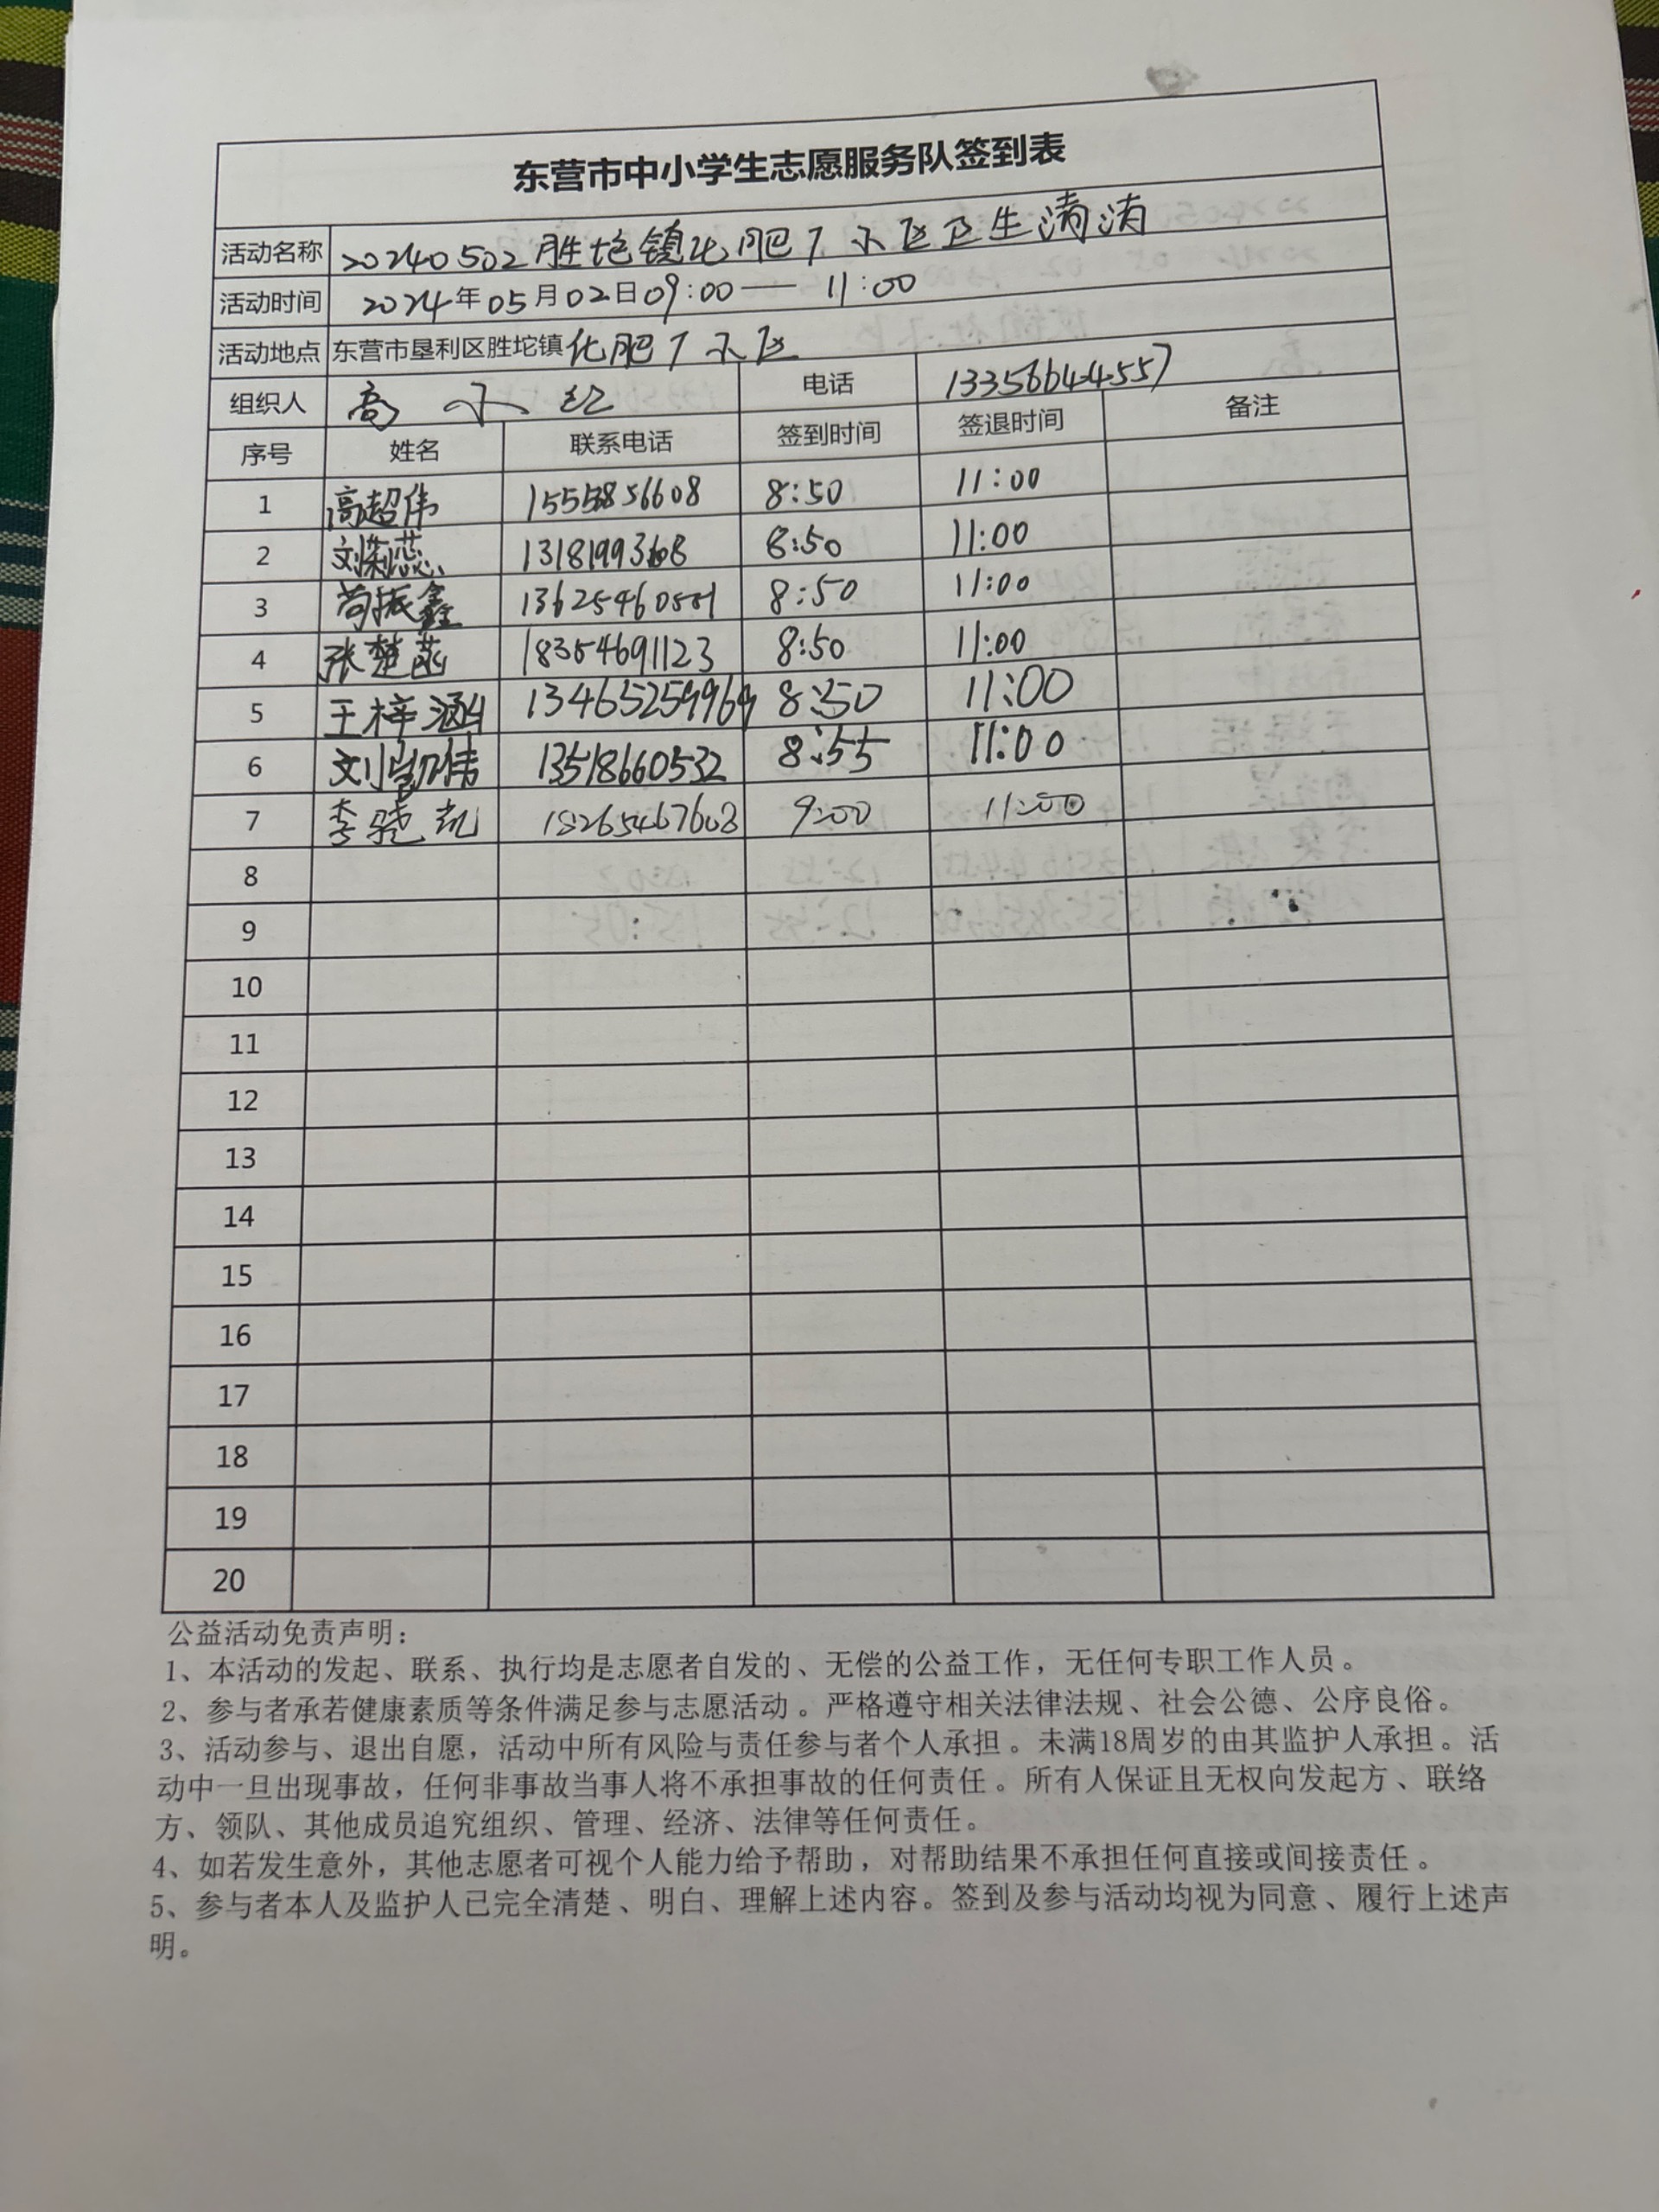 东营市中小学生志愿服务队签到表
活动名称 20240502胜坨镇化肥厂小区卫生清洁
活动时间 2024年05月02日09:00— 11:00
活动地点 东营市垦利区胜坨镇化肥厂小区
组织人 高小红 电话 13356644557
序号 姓名 联系电话 签到时间 签退时间 备注
1 高超伟 15558856608 8:50 11:00
2 刘 13181993608 8:50 11:00
3 苟振鑫 8:50 11:00
4 张楚菡 18354691123 8:50 11:00
5 王梓涵 13465259969 8:50 11:00
6 刘凯伟 13518660532 8:55 11:00
7 李骁凯 18265467603 9:00 11:00
8
9
10
11
12
13
14
15
16
17
18
19
20
公益活动免责声明：
1、本活动的发起、联系、执行均是志愿者自发的、无偿的公益工作，无任何专职工作人员。
2、参与者承若健康素质等条件满足参与志愿活动。严格遵守相关法律法规、社会公德、公序良俗。
3、活动参与、退出自愿，活动中所有风险与责任参与者个人承担。未满18周岁的由其监护人承担。活
动中一旦出现事故，任何非事故当事人将不承担事故的任何责任。所有人保证且无权向发起方、联络
方、领队、其他成员追究组织、管理、经济、法律等任何责任。
4、如若发生意外，其他志愿者可视个人能力给予帮助，对帮助结果不承担任何直接或间接责任。
5、参与者本人及监护人已完全清楚、明白、理解上述内容。签到及参与活动均视为同意、履行上述声
明。